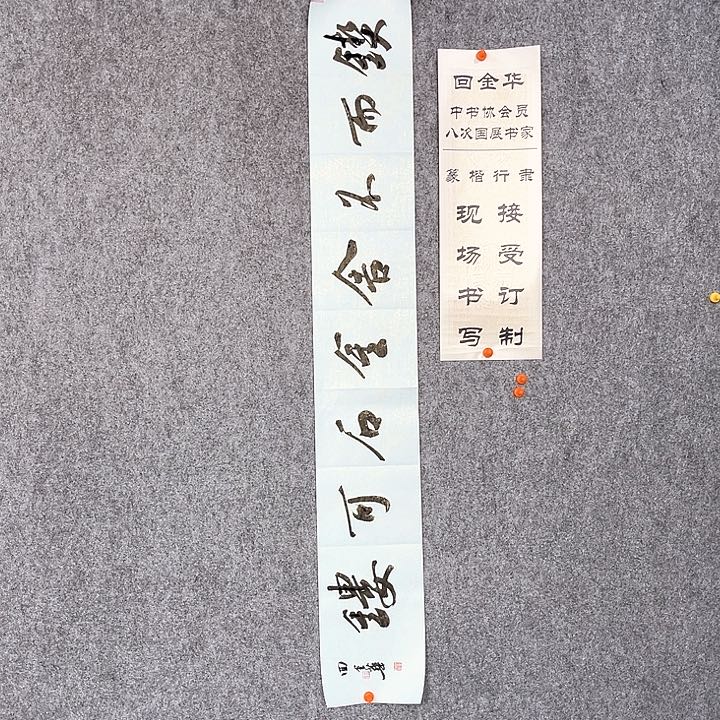 锲而不舍金石可镂
回金华
回金华
中书协会员
八次国展书家
篆楷行隶
接受订制
现场书写